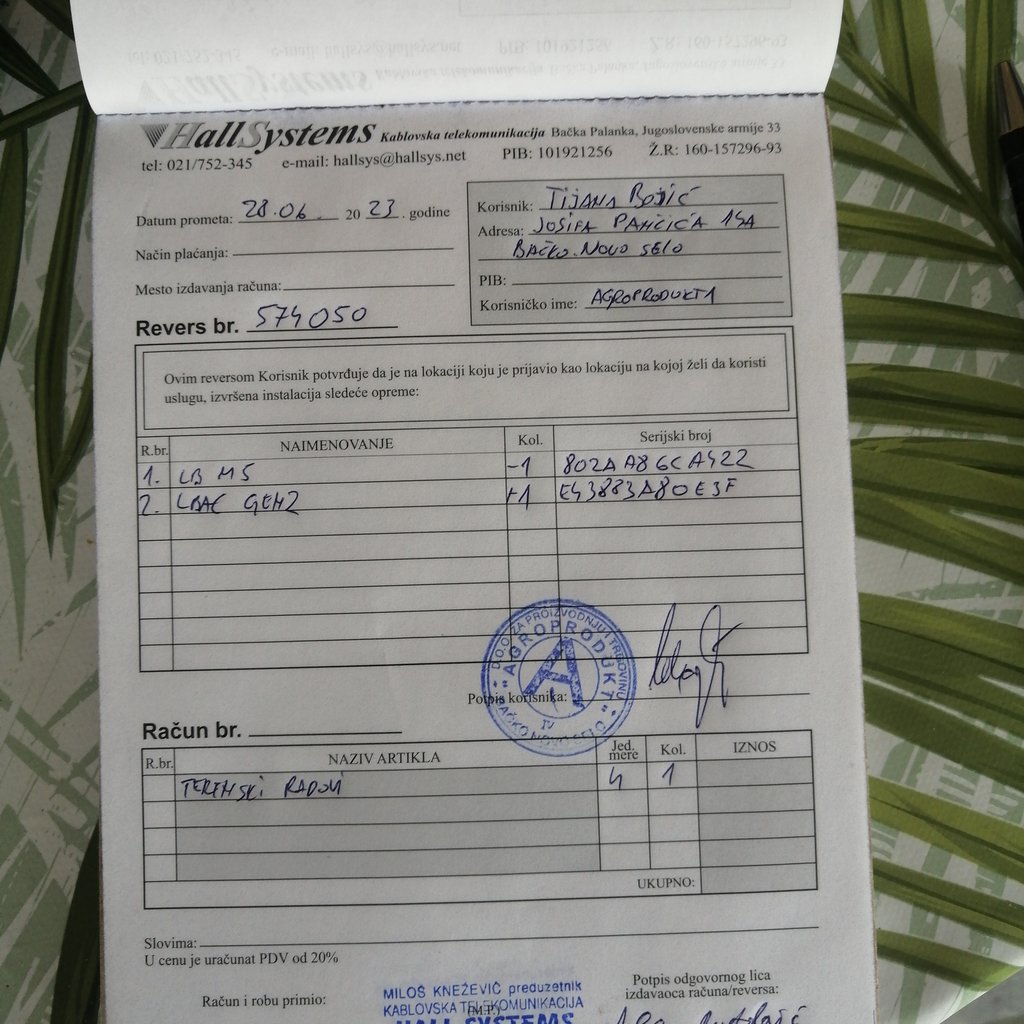 HallSystems Kablovska telekomunikacija Bačka Palanka, Jugoslovenske armije 33
tel: 021/752-345 e-mail: hallsys@hallsys.net PIB: 101921256 Ž.R: 160-157296-93
Datum prometa: 28.06 2023. godine
Način plaćanja:
Mesto izdavanja računa:
Revers br. 574050
Korisnik: TIJANA BOŽIĆ
Adresa: JOSIFA PANČIĆA 19A
BAČKO NOVO SELO
PIB:
Korisničko ime: AGROPRODUKT1
Ovim reversom Korisnik potvrđuje da je na lokaciji koju je prijavio kao lokaciju na kojoj želi da koristi
uslugu, izvršena instalacija sledeće opreme:
R.br. NAIMENOVANJE Kol. Serijski broj
1. LB M5 -1 802AA86CA422
2. LBAC GEN2 +1 E43883A80E3F
D.O.O. ZA PROIZVODNJU I TRGOVINU
"AGROPRODUKT"
A
IV
BAČKO NOVO SELO
Potpis korisnika:
Račun br.
R.br. NAZIV ARTIKLA Jed. mere Kol. IZNOS
TERENSKI RADOVI 4 1
UKUPNO:
Slovima:
U cenu je uračunat PDV od 20%
Račun i robu primio:
(M.P.)
MILOŠ KNEŽEVIĆ preduzetnik
KABLOVSKA TELEKOMUNIKACIJA
HALL SYSTEMS
Potpis odgovornog lica
izdavaoca računa/reversa: